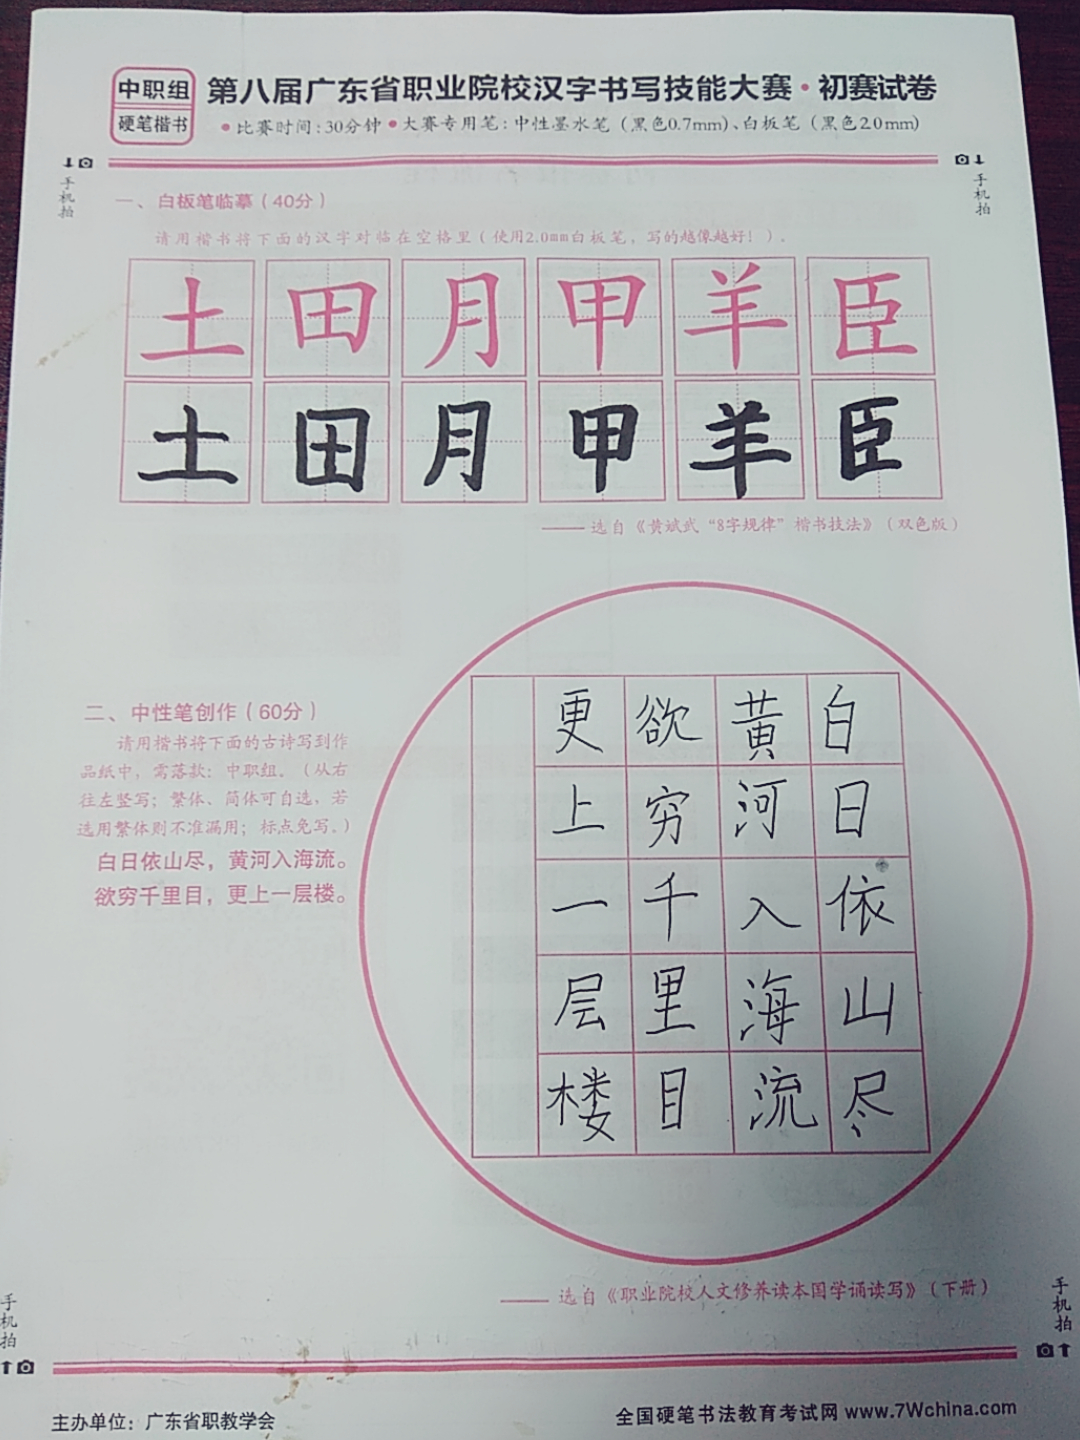 中职组
硬笔楷书
第八届广东省职业院校汉字书写技能大赛·初赛试卷
•比赛时间:30分钟•大赛专用笔:中性墨水笔(黑色0.7mm)、白板笔(黑色2.0mm)
手机拍
手机拍
一、白板笔临摹(40分)
请用楷书将下面的汉字对临在空格里(使用2.0mm白板笔,写的越像越好!)。
土田月甲羊臣
土田月甲羊臣
——选自《黄斌武“8字规律”楷书技法》(双色版)
二、中性笔创作(60分)
请用楷书将下面的古诗写到作
品纸中,需落款:中职组。(从右
往左竖写;繁体、简体可自选,若
选用繁体则不准漏用;标点免写。)
白日依山尽,黄河入海流。
欲穷千里目,更上一层楼。
白日依山尽
黄河入海流
欲穷千里目
更上一层楼
——选自《职业院校人文修养读本国学诵读写》(下册)
手机拍
手机拍
主办单位:广东省职教学会
全国硬笔书法教育考试网 www.7Wchina.com